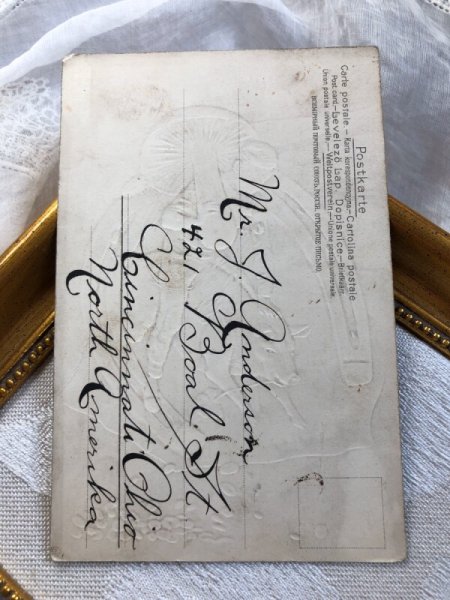 Postkarte
Carte postale – Karta korespondencyjna – Cartolina postale
Post card – Levelező Lap. Dopisnice – Briefkaart
Union postale universelle. – Weltpostverein – Unione postale universale.
Mr. J. Anderson
421 Boal. St.
Cincinnati Ohio
North Amerika